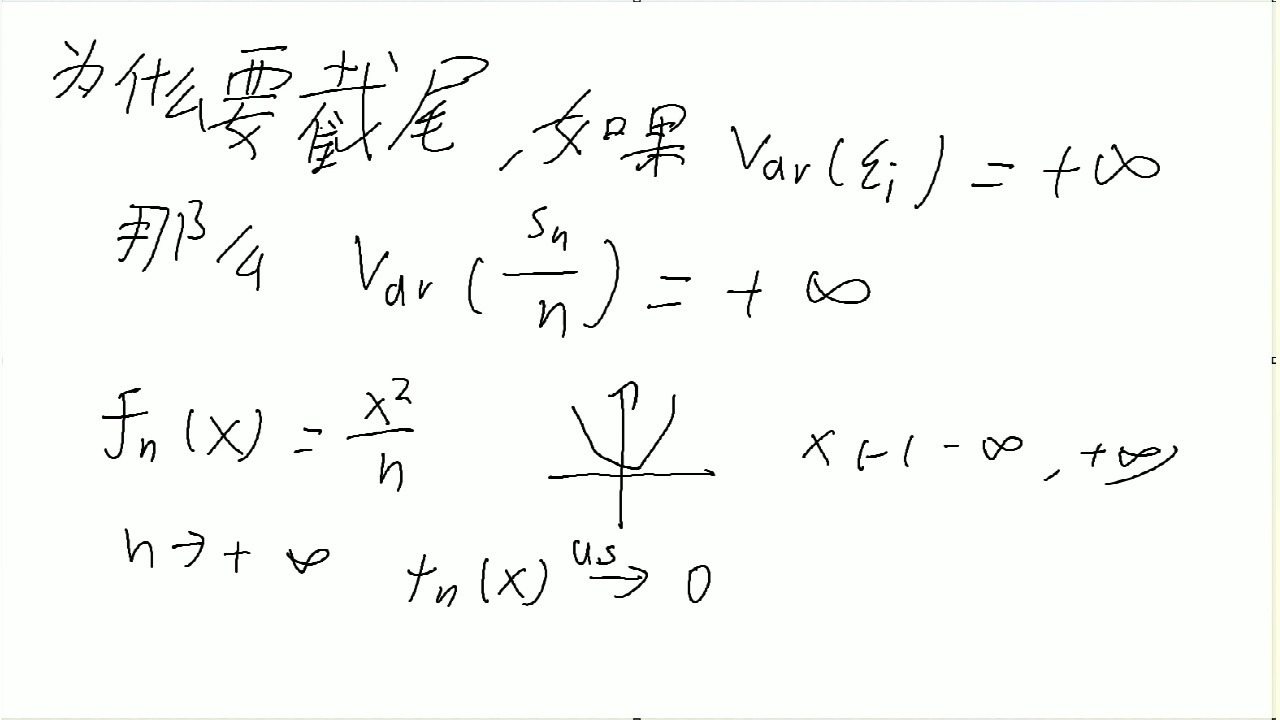 为什么要截尾,如果 Var(ξi) = +∞
那么 Var(Sn/n) = +∞
fn(x) = x²/n x∈(-∞,+∞)
n→+∞ fn(x) as→ 0